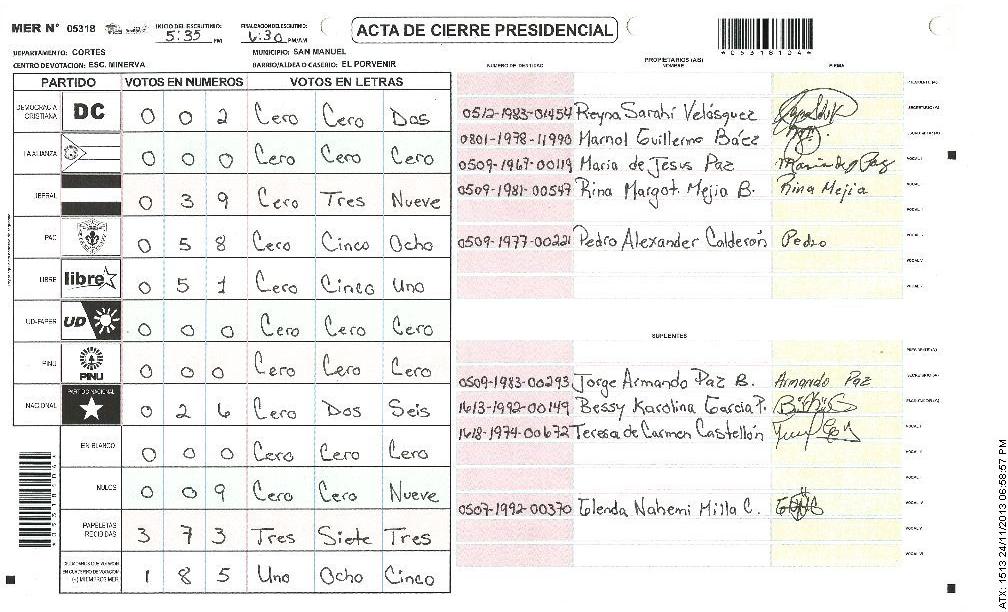 MER N° 05318 INICIO DEL ESCRUTINIO: 5:35 PM FINALIZACION DEL ESCRUTINIO: 6:30 PM/AM ACTA DE CIERRE PRESIDENCIAL
* 0 5 3 1 8 1 3 4 4 *
DEPARTAMENTO: CORTES MUNICIPIO: SAN MANUEL
CENTRO DE VOTACION: ESC. MINERVA BARRIO/ALDEA O CASERIO: EL PORVENIR
PARTIDO VOTOS EN NUMEROS VOTOS EN LETRAS
DEMOCRACIA CRISTIANA DC 0 0 2 Cero Cero Dos
LA ALIANZA 0 0 0 Cero Cero Cero
LIBERAL 0 3 9 Cero Tres Nueve
PAC 0 5 8 Cero Cinco Ocho
LIBRE libre 0 5 1 Cero Cinco Uno
UD-FAPER UD 0 0 0 Cero Cero Cero
PINU PINU 0 0 0 Cero Cero Cero
NACIONAL PARTIDO NACIONAL 0 2 6 Cero Dos Seis
EN BLANCO 0 0 0 Cero Cero Cero
NULOS 0 0 9 Cero Cero Nueve
PAPELETAS RECIBIDAS 3 7 3 Tres Siete Tres
CIUDADANOS QUE VOTARON EN CUADERNO DE VOTACION (+) MIEMBROS MER 1 8 5 Uno Ocho Cinco
NUMERO DE IDENTIDAD PROPIETARIOS (AS) NOMBRE FIRMA
PRESIDENTE (A)
0512-1983-01454 Reyna Sarahi Velásquez SECRETARIO (A)
0801-1978-11990 Marnol Guillermo Báez ESCRUTADOR (A)
0509-1967-00119 Maria de Jesus Paz Maria de J Paz VOCAL I
0509-1981-00547 Rina Margot Mejia B. Rina Mejia
0509-1977-00221 Pedro Alexander Calderón Pedro
SUPLENTES
PRESIDENTE (A)
0509-1983-00293 Jorge Armando Paz B. Armando Paz SECRETARIO (A)
1613-1992-00149 Bessy Karolina Garcia P. ESCRUTADOR (A)
1618-1974-00672 Teresa de Carmen Castellón VOCAL I
0507-1992-00370 Glenda Nahemi Milla C.
VOCAL VI
ATX: 1513 24/11/2013 06:58:57 PM